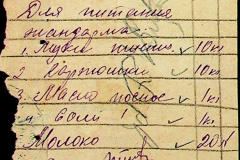 Для питания
жандарма
1. Муки пшенич. 10 кг
2. Картошки 10 кг
3. Масло постное 1 кг
4. Соли 1 кг
Молоко 20 л